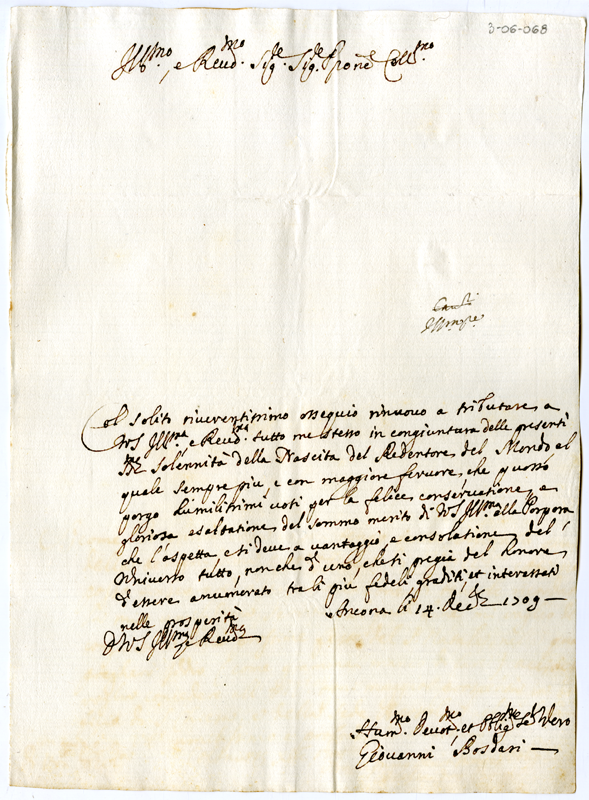 3-06-068
Ill.mo, e Reud.mo Sig.re Sig.re Prone Coll.mo
Col solito riverentissimo ossequio rinuouo a tributare a
VS Ill.ma, e Reud.ma tutto me stesso in congiuntura delle presenti
S.me Solennità della Nascita del Redentore del Mondo al
quale sempre più, e con maggiore feruore, che posso
porgo humilissimi voti per la felice conseruatione, e
gloriosa esaltatione del sommo merito di VS Ill.ma alla Porpora
che l'aspetta, e si deue a vantaggio, e consolatione del
Vniuerso tutto, non che d'uno, che si pregia del honore
d'essere anumerato tra li più fedeli, graditi, et interessati
nelle prosperità
D VS Ill.ma, e Reud.ma
Ancona li 14. Xbre 1709
Hum.mo Deuot.mo et Oblig.mo Se.re Vero
Giouanni Bosdari